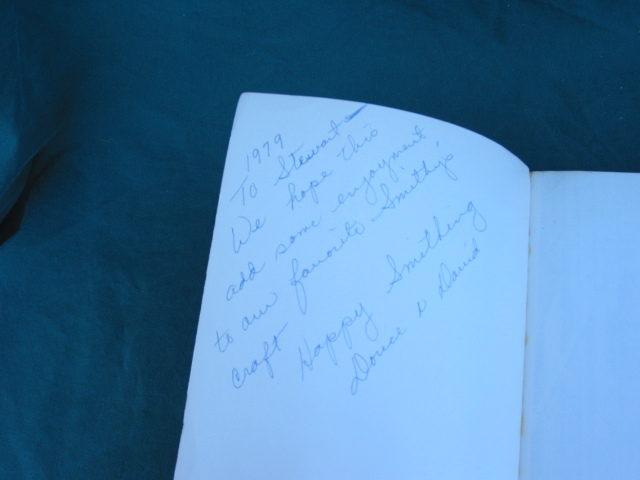 1979
To Stewart
We hope this
add some enjoyment
to our favorite Smithy's
craft
Happy Smithing
David